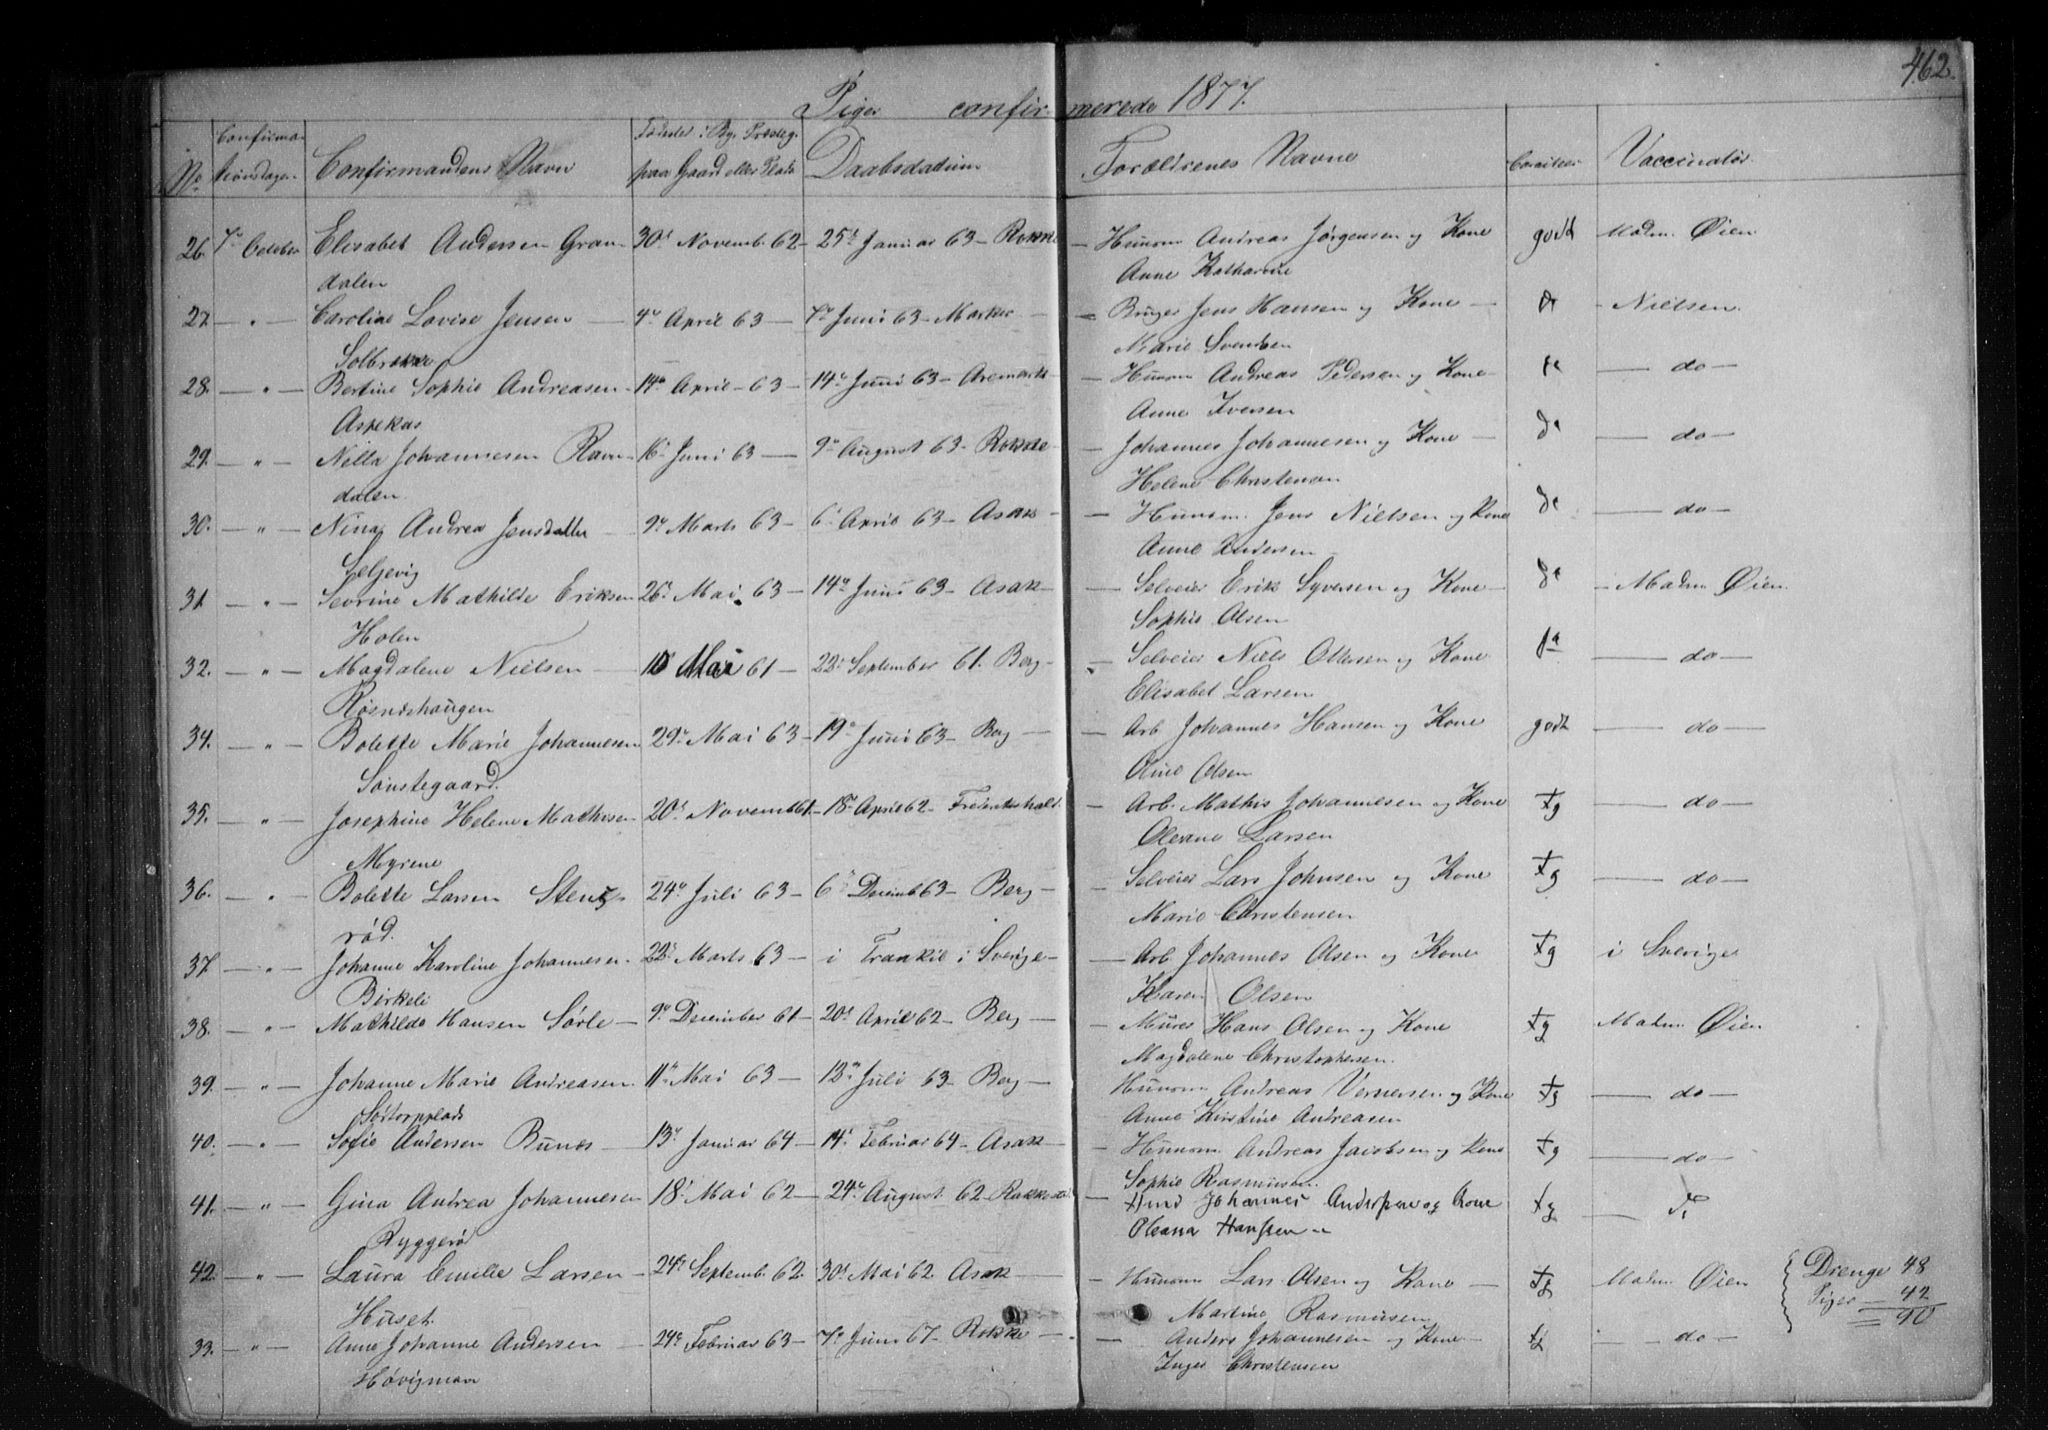 462.
Piger confirmerede 1877.
No Confirmationsdagen Confirmandens Navn Fødested i Bg. Præsteg. paa Gaard eller Plads Daabsdatum Forældrenes Navne Vaccinatør
26. 7de October Elisabet Andersen Gran- 30t Novemb. 62 – 25t Januar 63 – Rokke – Husm Andreas Jørgensen og Kone godt Madm. Øien
dalen Anne Katharine
27. — " — Caroline Lovise Jensen — 4de April 63 — 7de Juni 63 – Marker — Bruger Jens Hansen og Kone — do – Nielsen
Solbrekke Marie Svendsen
28. — " — Bertine Sophie Andreasen – 14de April – 63 — 14de Juni 63 – Aremark – Husm Andreas Pedersen og Kone – do — do —
Aspekas Anne Iversen
29. — " — Nilla Johannesen Ravn- 16de Juni 63 — 9de August 63 – Rokke – Johannes Johannesen og Kone — do — do —
dalen. Helene Christensen
30. — " — Nina Andrea Jensdatter 9de Marts 63 – 6te April 63 – Asak — Husm. Jens Nielsen og Kone do — do —
Seljevig Anne Andersen
31. — " — Sevrine Mathilde Eriksen 26de Mai 63 – 14de Juni 63 – Asak — Selveier Erik Syversen og Kone — do – Madm Øien
Holen Sophie Olsen
32. — " — Magdalene Nielsen — 10 Mai 61 — 22de September 61. Berg – Selveier Niels Ottersen og Kone do — do —
Røsneshaugen Elisabet Larsen
34. — " — Bolette Marie Johannesen 29de Mai 63 – 19de Juni 63 – Berg — Arb Johannes Hansen og Kone godt — do —
Sønstegaard. Oline Olsen
35. — " — Josephine Helene Mathisen 20de Novemb 61 – 18de April 62 – Frederikshald – Arb. Mathis Johannesen og Kone tg — do —
Myrene Oleane Larsen
36. — " — Bolette Larsen Stens- 24de Juli 63 – 6te Decemb 63 – Berg – Selveier Lars Johnsen og Kone tg — do —
rød. Marie Christensen
37. — " — Johanne Karoline Johannesen – 22de Marts 63 — i Frankil i Sverige – Arb Johannes Olsen og Kone tg i Sverige
Birkeli Karen Olsen
38. — " — Mathilde Hansen Sørle — 9de December 61 – 20de April 62 – Berg — Murer Hans Olsen og Kone tg Madm. Øien
Magdalene Christophersen.
39. — " — Johanne Marie Andreasen. 11te Mai 63 — 12te Juli 63 – Berg — Husm Andreas Vernersen og Kone tg — do —
Søstorpplads Anne Kirstine Andreasen
40. — " — Sofie Andersen Bunes — 13de Januar 64 – 14de Februar 64 – Asak — Husm Andreas Jacobsen og Kone tg — do —
Sophie Rasmussen.
41. — " — Gina Andrea Johannesen 18de Mai 62 – 24de August 62 – Rokke – Husm Johannes Anderssen og Kone tg — do
Ryggerød Oleana Hanssen
42. — " — Laura Emilie Larsen – 24de Septemb. 62. 30de Mai 62 Asak — Husm Lars Olsen og Kone — tg Madm Øien
Huset. Martine Rasmusen
Drenge 48
Piger — 42
90
33. — " — Anne Johanne Andersen 24de Februar 63 – 7de Juni 67 – Rokke — Anders Johannesen og Kone – tg — do —
Høvigmoen Inger Christensen